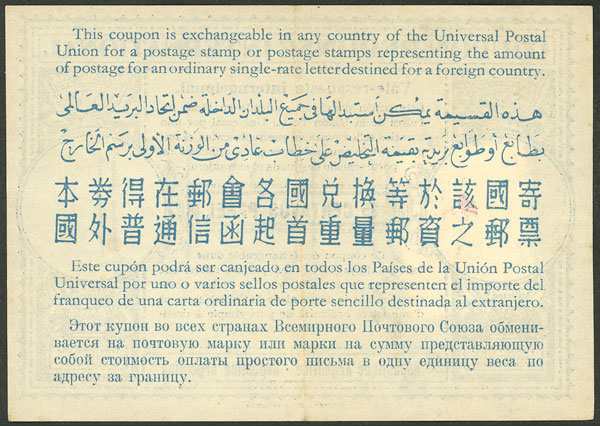 This coupon is exchangeable in any country of the Universal Postal
Union for a postage stamp or postage stamps representing the amount
of postage for an ordinary single-rate letter destined for a foreign country.
هذه القسيمة يمكن استبدالها في جميع البلدان الداخلة ضمن اتحاد البريد العالمى
بطابع أو طوابع بريدية بقيمة التخليص على خطاب عادى من الوزنة الأولى برسم الخارج
本券得在郵會各國兌換等於該國寄
國外普通信函起首重量郵資之郵票
Este cupón podrá ser canjeado en todos los Países de la Unión Postal
Universal por uno o varios sellos postales que representen el importe del
franqueo de una carta ordinaria de porte sencillo destinada al extranjero.
Этот купон во всех странах Всемирного Почтового Союза обмени-
вается на почтовую марку или марки на сумму представляющую
собой стоимость оплаты простого письма в одну единицу веса по
адресу за границу.